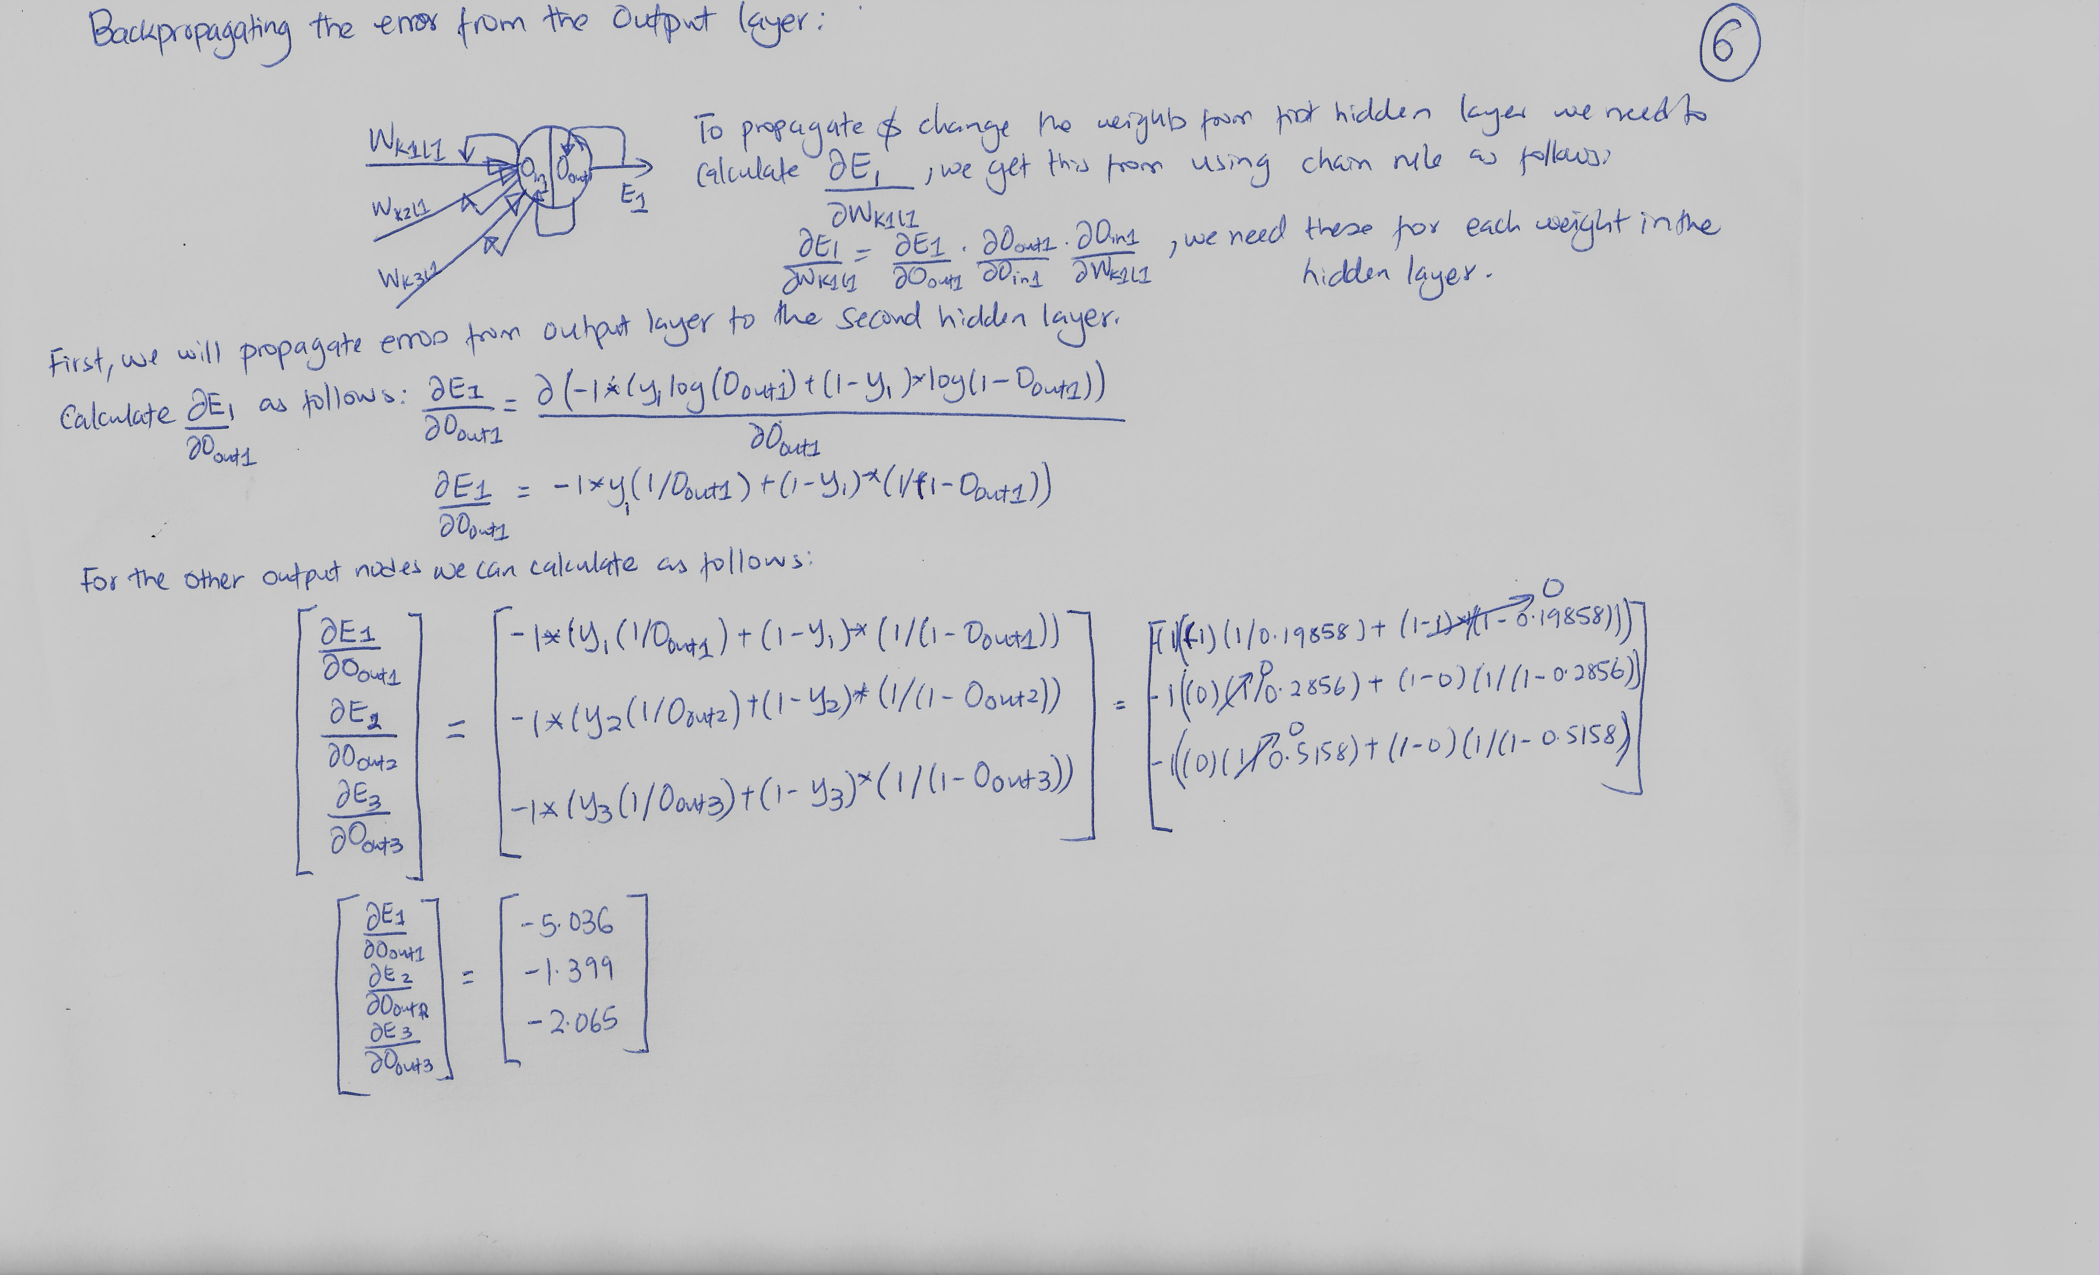 Backpropagating the error from the Output layer:
6
WK1L1
WK2L1
WK3L1
Oin1
Oout1
E1
To propagate & change the weights from first hidden layer we need to
calculate ∂E1/∂WK1L1, we get this from using chain rule as follows:
∂E1/∂WK1L1 = ∂E1/∂Oout1 · ∂Oout1/∂Oin1 · ∂Oin1/∂WK1L1, we need these for each weight in the
hidden layer.
First, we will propagate error from output layer to the second hidden layer.
Calculate ∂E1/∂Oout1 as follows: ∂E1/∂Oout1 = ∂(-1*(y1 log(Oout1)+(1-y1)*log(1-Oout1))/∂Oout1
∂E1/∂Oout1 = -1*y1(1/Oout1)+(1-y1)*(1/(1-Oout1))
For the other output nodes we can calculate as follows:
[∂E1/∂Oout1] = [-1*(y1(1/Oout1)+(1-y1)*(1/(1-Oout1))] = [-1((1)(1/0.19858)+(1-1)*(1-0.19858)))] 0
[∂E2/∂Oout2] = [-1*(y2(1/Oout2)+(1-y2)*(1/(1-Oout2))] = [-1((0)(1/0.2856)+(1-0)(1/(1-0.2856))] 0
[∂E3/∂Oout3] = [-1*(y3(1/Oout3)+(1-y3)*(1/(1-Oout3))] = [-1((0)(1/0.5158)+(1-0)(1/(1-0.5158)] 0
[∂E1/∂Oout1] = [-5.036]
[∂E2/∂Oout2] = [-1.399]
[∂E3/∂Oout3] = [-2.065]